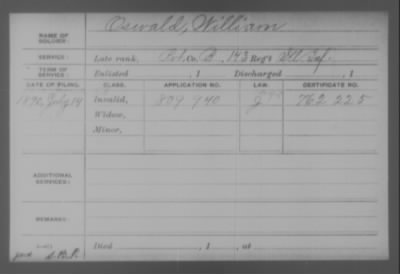 NAME OF SOLDIER: Oswald, William
SERVICE: Late rank, Pvt, Co. B, 143 Reg't Ill. Inf.
TERM OF SERVICE: Enlisted , 1 Discharged , 1
DATE OF FILING. CLASS. APPLICATION NO. LAW. CERTIFICATE NO.
1890, July 14 Invalid, 809 940 762 225
Widow,
Minor,
ADDITIONAL SERVICES:
REMARKS:
Died , 1 , at